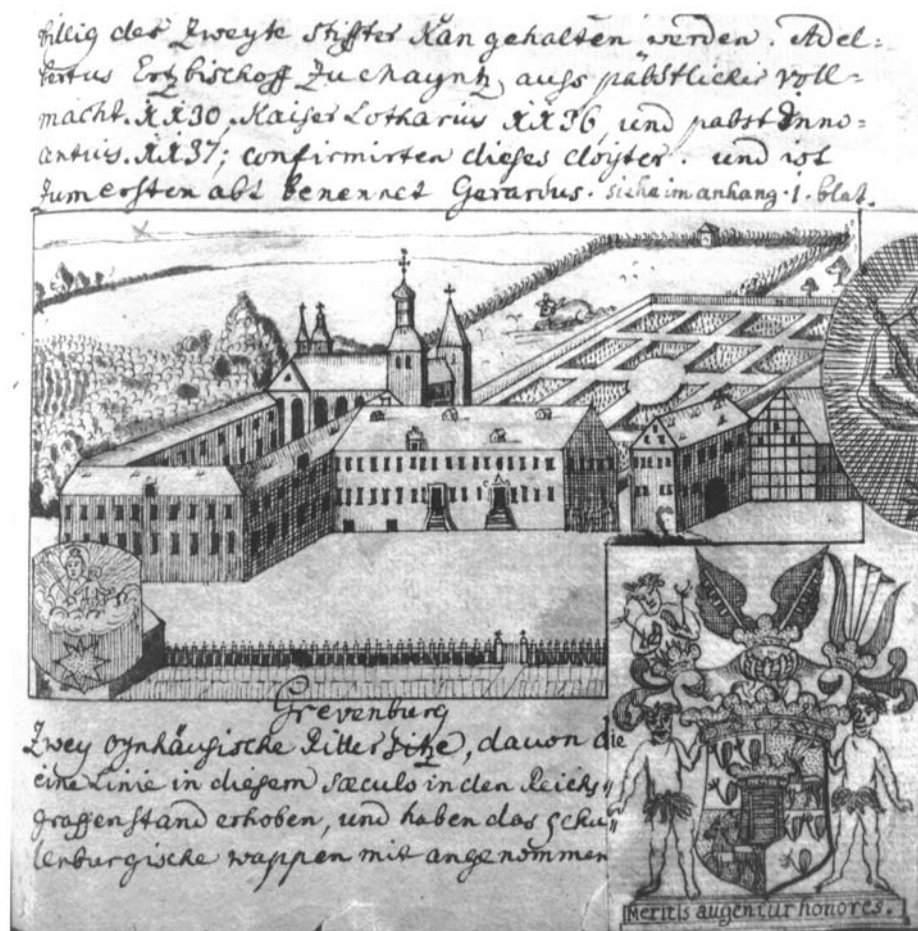 billig der Zweyte Stiffter Kan gehalten werden. Adel=
bertus Ertzbischoff Zu Mayntz auss päbstlicher voll=
macht. XX30, Kaiser Lotharius XX36, und pabst Inno=
centius. XX37; confirmirten dieses closter. und ist
Zum ersten abt benennet Gerardus. siehe im anhang. 1. blat.
Grevenburg
Zwey oynhäusische Rittersitze, davon die
eine Linie in diesem sæculo in den Reichs
graffenstand erhoben, und haben das schu
lenburgische wappen mit angenommen
Meritis augentur honores.